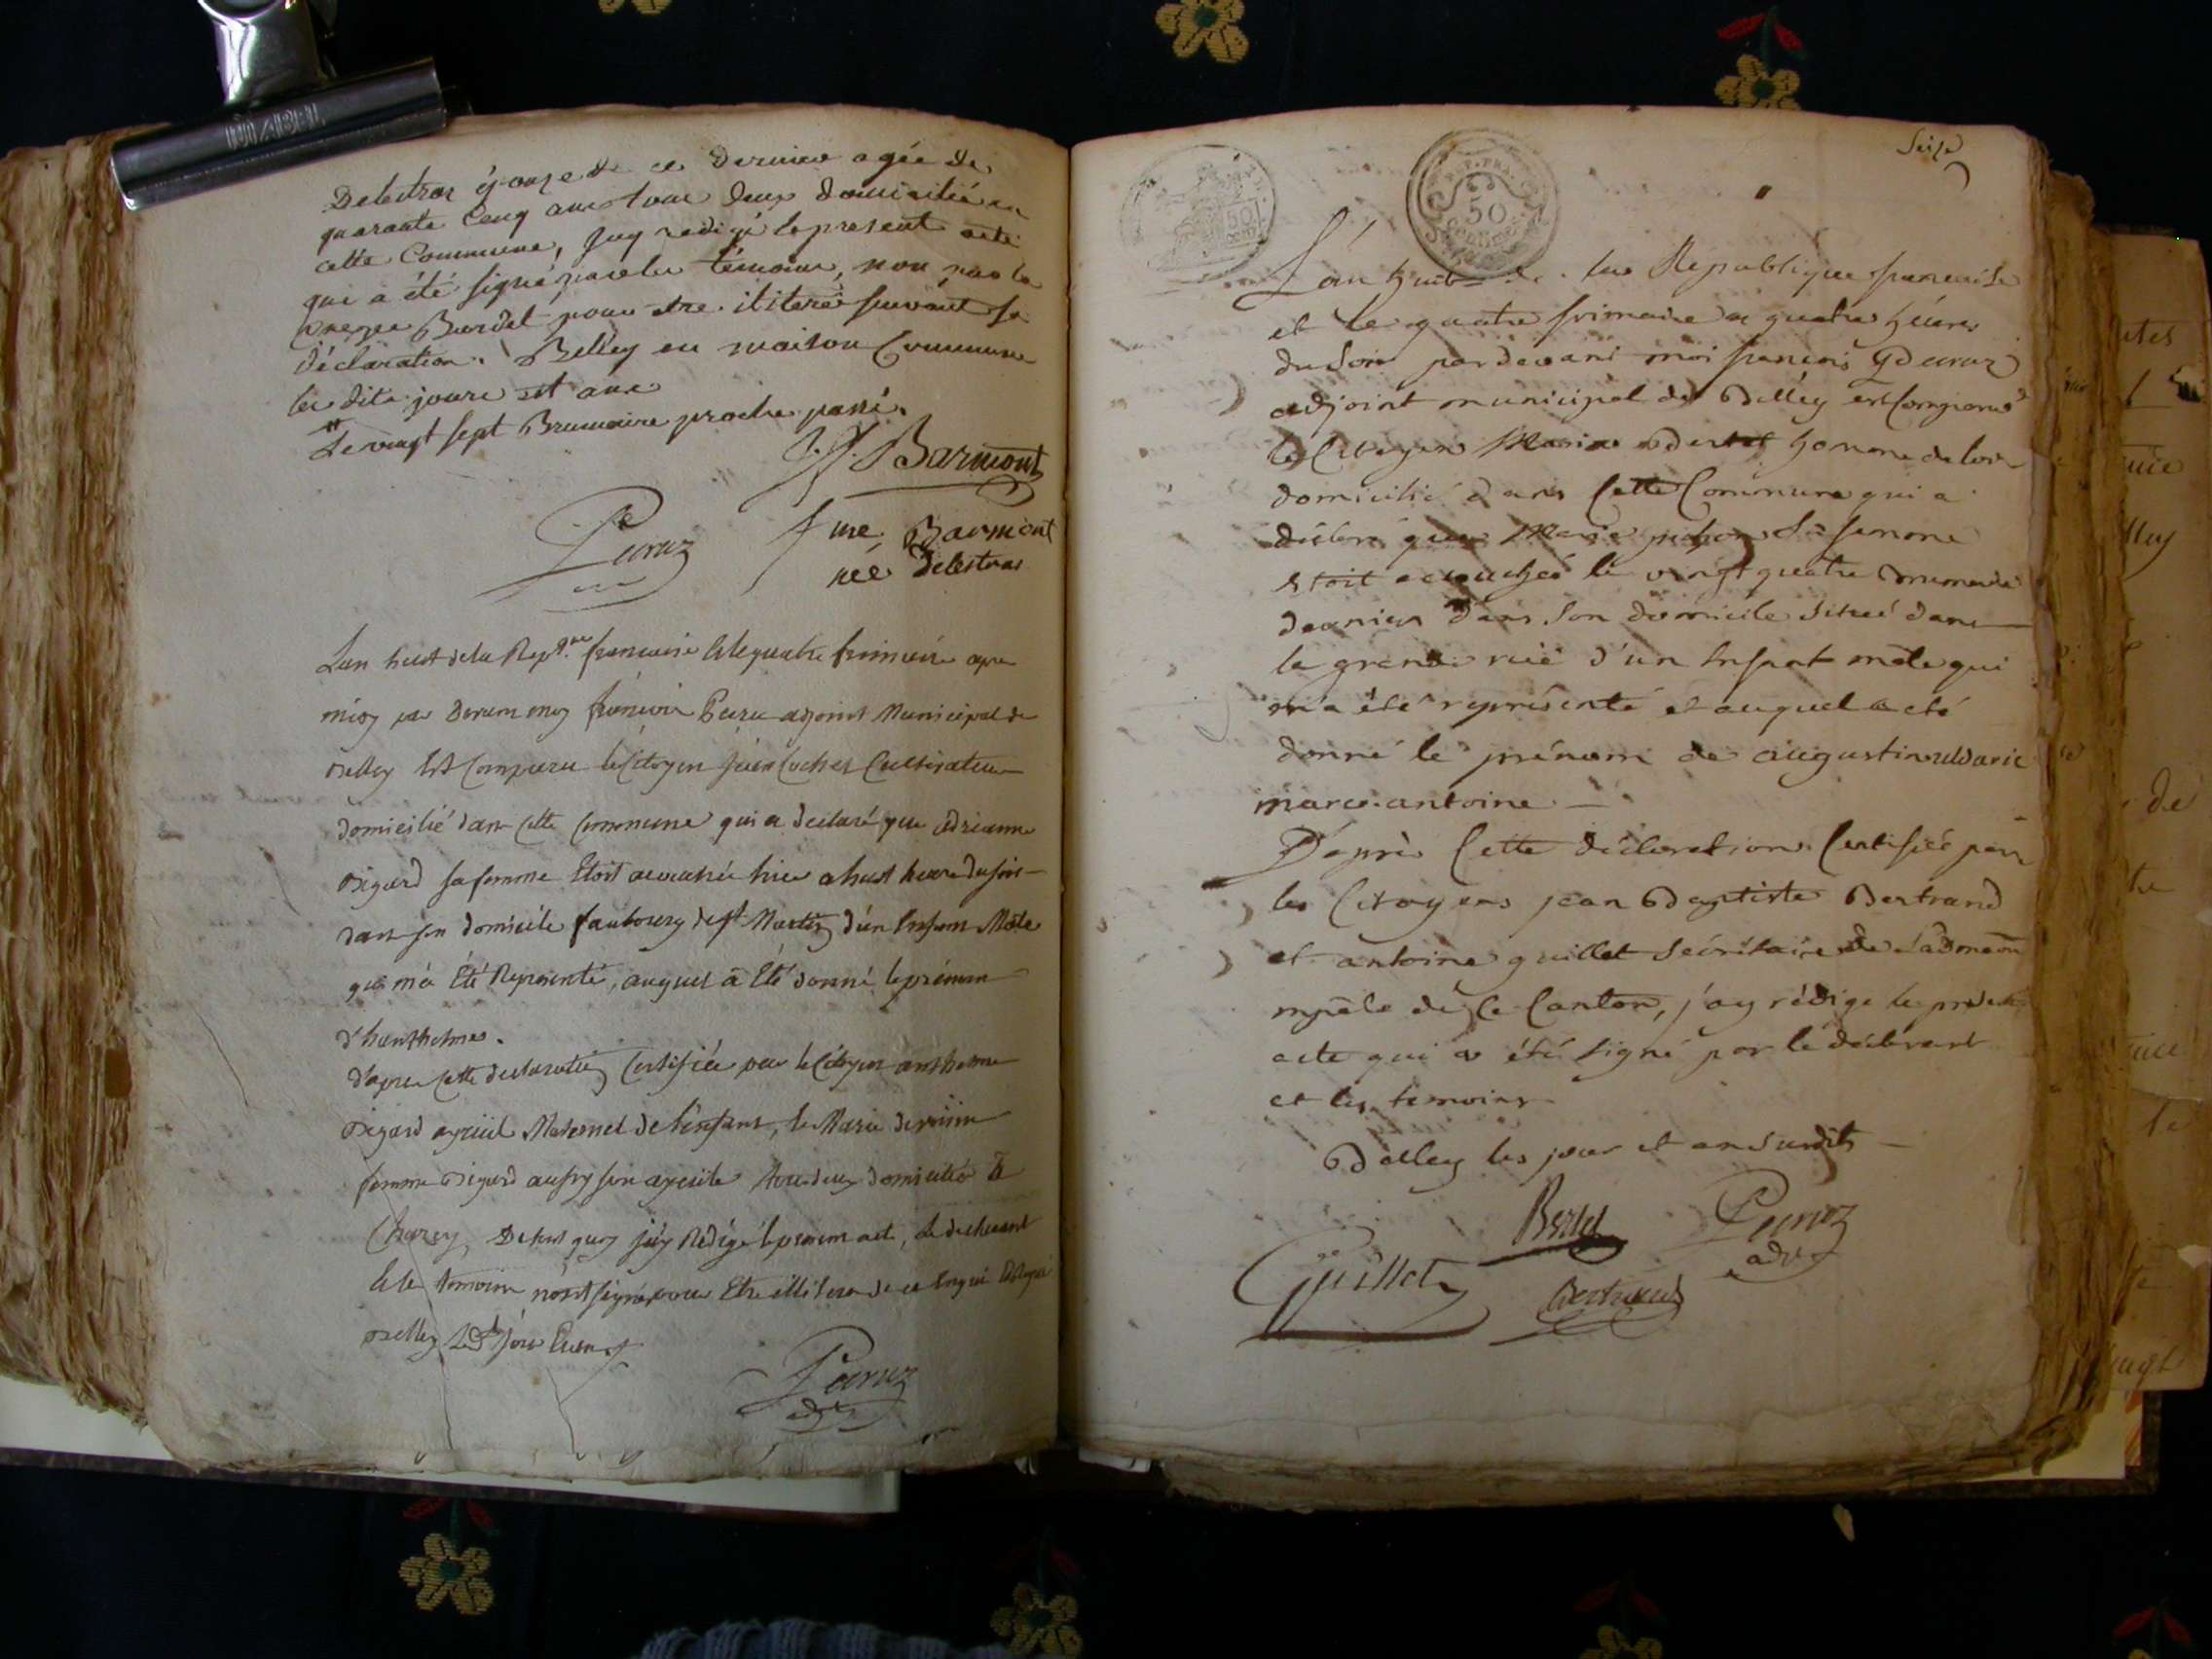 Delestras épouse de ce dernier agée de
quarante Cinq ans tous deux domiciliés en
cette Commune, j'ay redigé le present acte
qui a été signé par les témoins, non par le
Burdet pour etre iliteré suivant sa
déclaration. Belley en maison Commune
les dits jours et an
Le vingt sept Brumaire proche passé.
Barmont
Peruz
fme Barmont
née delestras
L'an huit de la Rep.que francaise & le quatre frimaire apre
midy par devant moy francois Peruz adjoint Municipal de
Belley Est Comparu le Citoyen Jean Cochet Cultivateur
domicilié dans cette Commune qui a declaré que adrianne
Bigard sa femme Etoit accouchée hier a huit heure du soir
dans son domicile faubourg de st Martin d'un Enfant Mâle
qui m'a Eté Representé, auquel a Eté donné le prénom
d'hanthelme.
d'apres Cette declaration Certifiée par le Citoyen anthelme
Bigard ayeuil Maternel de l'enfant, & Marie
femme Bigard aussy son ayeule tous deux domiciliés a
De tout quoy j'ay Rédigé le présent acte, le declarant
& les temoins n'ont signé pour Etre illiteré de ce Enquis
Belley Led. jour & an
Peruz
adj
Seize
50
R. P. FRA.
50
Centimes
L'an huit de la République francaise
et le quatre frimaire a quatre heures
du Soir pardevant moi francois Peruz
adjoint municipal de Belley est Comparu
le Citoyen Bertet homme de loi
domicilié dans Cette Commune qui a
déclaré que Marie Sa femme
Etoit accouchée le vingt quatre Brumaire
dernier dans Son domicile Situé dans
la grande rue d'un Enfant mâle qui
m'a été représenté et auquel a eté
donné le prénom de augustin Marie
marc-antoine —
D'après Cette déclaration Certifiée par
les Citoyens jean Baptiste Bertrand
et antoine guillet Secrétaire de L'admeon
mpale de Ce Canton, j'ay rédigé le présent
acte qui a été signé par le déclarant
et les temoins
Belley les jour et an Susdits —
Bertet
Peruz
adj
Guillet
Bertrand